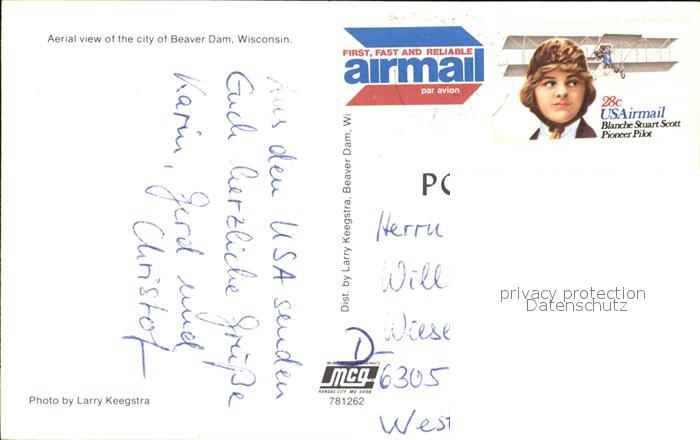 Aerial view of the city of Beaver Dam, Wisconsin.
Aus den USA senden
Euch herzliche Grüße
Karin, Gerd und
Christof
Photo by Larry Keegstra
FIRST, FAST AND RELIABLE
airmail
par avion
28c
USAirmail
Blanche Stuart Scott
Pioneer Pilot
Dist. by Larry Keegstra, Beaver Dam, Wi
PO
Herrn
Will
Wiese
D-
6305
West
mcg
KANSAS CITY MO 64108
781262
privacy protection
Datenschutz